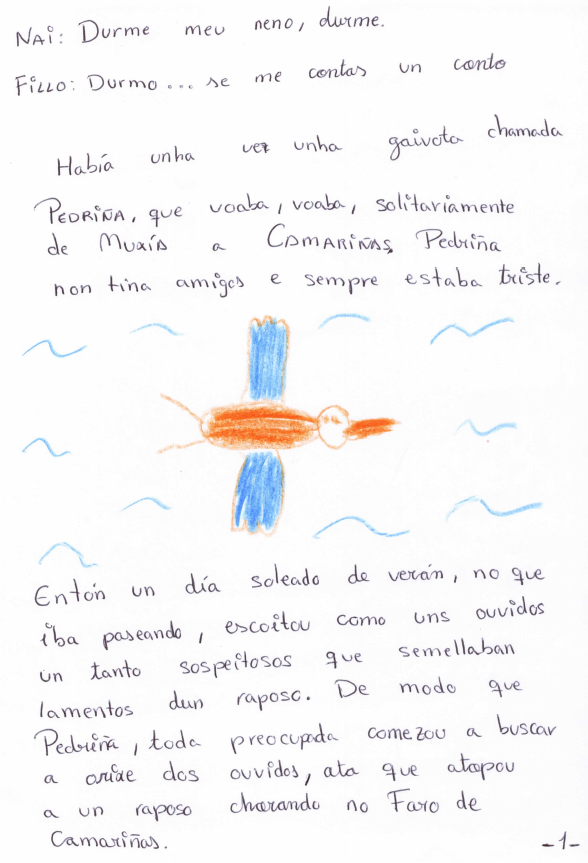 NAi: Durme meu neno, durme.
FiLLO: DURMO... se me contas un conto
Había unha vez unha gaivota chamada
PEDRIÑA, que voaba, voaba, solitariamente
de MUXÍA a CAMARIÑAS, Pedriña
non tiña amigos e sempre estaba triste.
Entón un día soleado de verán, no que
iba paseando, escoitou como uns ouvidos
un tanto sospeitosos que semellaban
lamentos dun raposo. De modo que
Pedriña, toda preocupada comezou a buscar
a orixe dos ouvidos, ata que atopou
a un raposo chorando no Faro de
Camariñas.
-1-